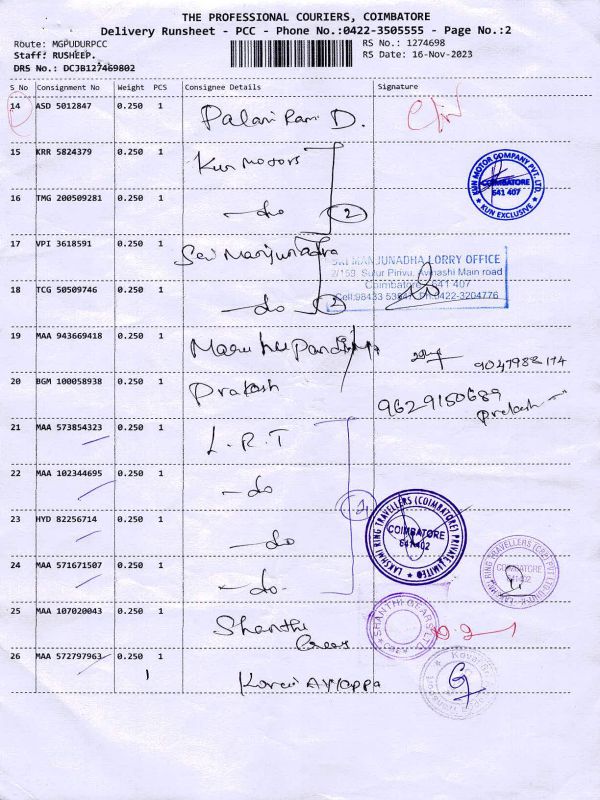 THE PROFESSIONAL COURIERS, COIMBATORE
Delivery Runsheet - PCC - Phone No.:0422-3505555 - Page No.:2
Route: MGPUDURPCC RS No.: 1274698
Staff: RUSHEEP. RS Date: 16-Nov-2023
DRS No.: DCJB127469802
S_No Consignment No Weight PCS Consignee Details Signature
14 ASD 5012847 0.250 1 Palani Rani D.
15 KRR 5824379 0.250 1 Kun Motors
KUN MOTOR COMPANY PVT. LTD.
COIMBATORE
641 407
* KUN EXCLUSIVE *
16 TMG 200509281 0.250 1 - do 2
17 VPI 3618591 0.250 1 Sri Manjunadha
SRI MANJUNADHA LORRY OFFICE
2/159, Sulur Pirivu, Avinashi Main road
Coimbatore - 641 407
18 TCG 50509746 0.250 1 - do 2
Cell:98433 Ph:0422-3204776
19 MAA 943669418 0.250 1
20 BGM 100058938 0.250 1 Prakash 9629150689
Prakash
21 MAA 573854323 0.250 1 L.R.T
22 MAA 102344695 0.250 1 - do 4
23 HYD 82256714 0.250 1 - do
LAKSHMI RING TRAVELLERS (COIMBATORE) PRIVATE LIMITED
COIMBATORE
641402
24 MAA 571671507 0.250 1 - do -
LAKSHMI RING TRAVELLERS (CBE) PVT LTD
COIMBATORE
641 402
25 MAA 107020043 0.250 1 Shanthi
Gears
SHANTHI GEARS LTD
26 MAA 572797963 0.250 1